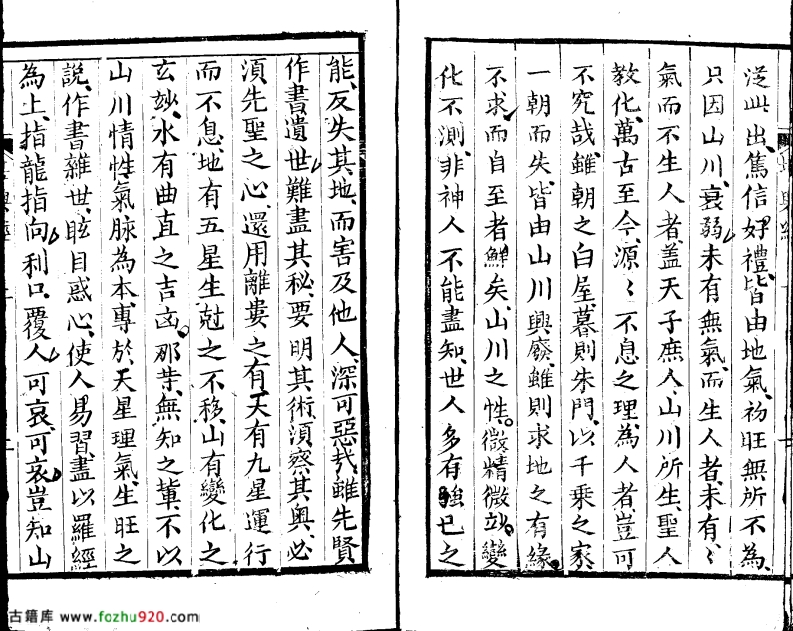 從此出、篤信好禮、皆由地氣、初旺無所不為、
只因山川、衰弱、未有無氣、而生人者、未有〻
氣而不生人者、蓋天子庶人、山川所生、聖人
教化、萬古至今、源〻不息之理、為人者、豈可
不究哉、雖朝之白屋、暮則朱門、以千乘之家、
一朝而失、皆由山川興廢、雖則求地之有緣、
不求、而自至者鮮矣、山川之性、微精微玅、變
化不測、非神人不能盡知、世人多有強已之
能、反失其地、而害及他人、深可惡哉、雖先賢
作書遺世、難盡其秘、要明其術、須察其奧、必
須先聖之心、還用離婁之有、天有九星運行
而不息、地有五星生尅之不移、山有變化之
玄妙、水有曲直之吉凶、那葉、無知之輩、不以
山川情性氣脉為本、專於天星理氣、生旺之
說、作書雜世、眩目惑心、使人易習、盡以羅經
為上、指龍指向、利口覆人、可哀、可哀、豈知山
古籍库 www.fozhu920.com